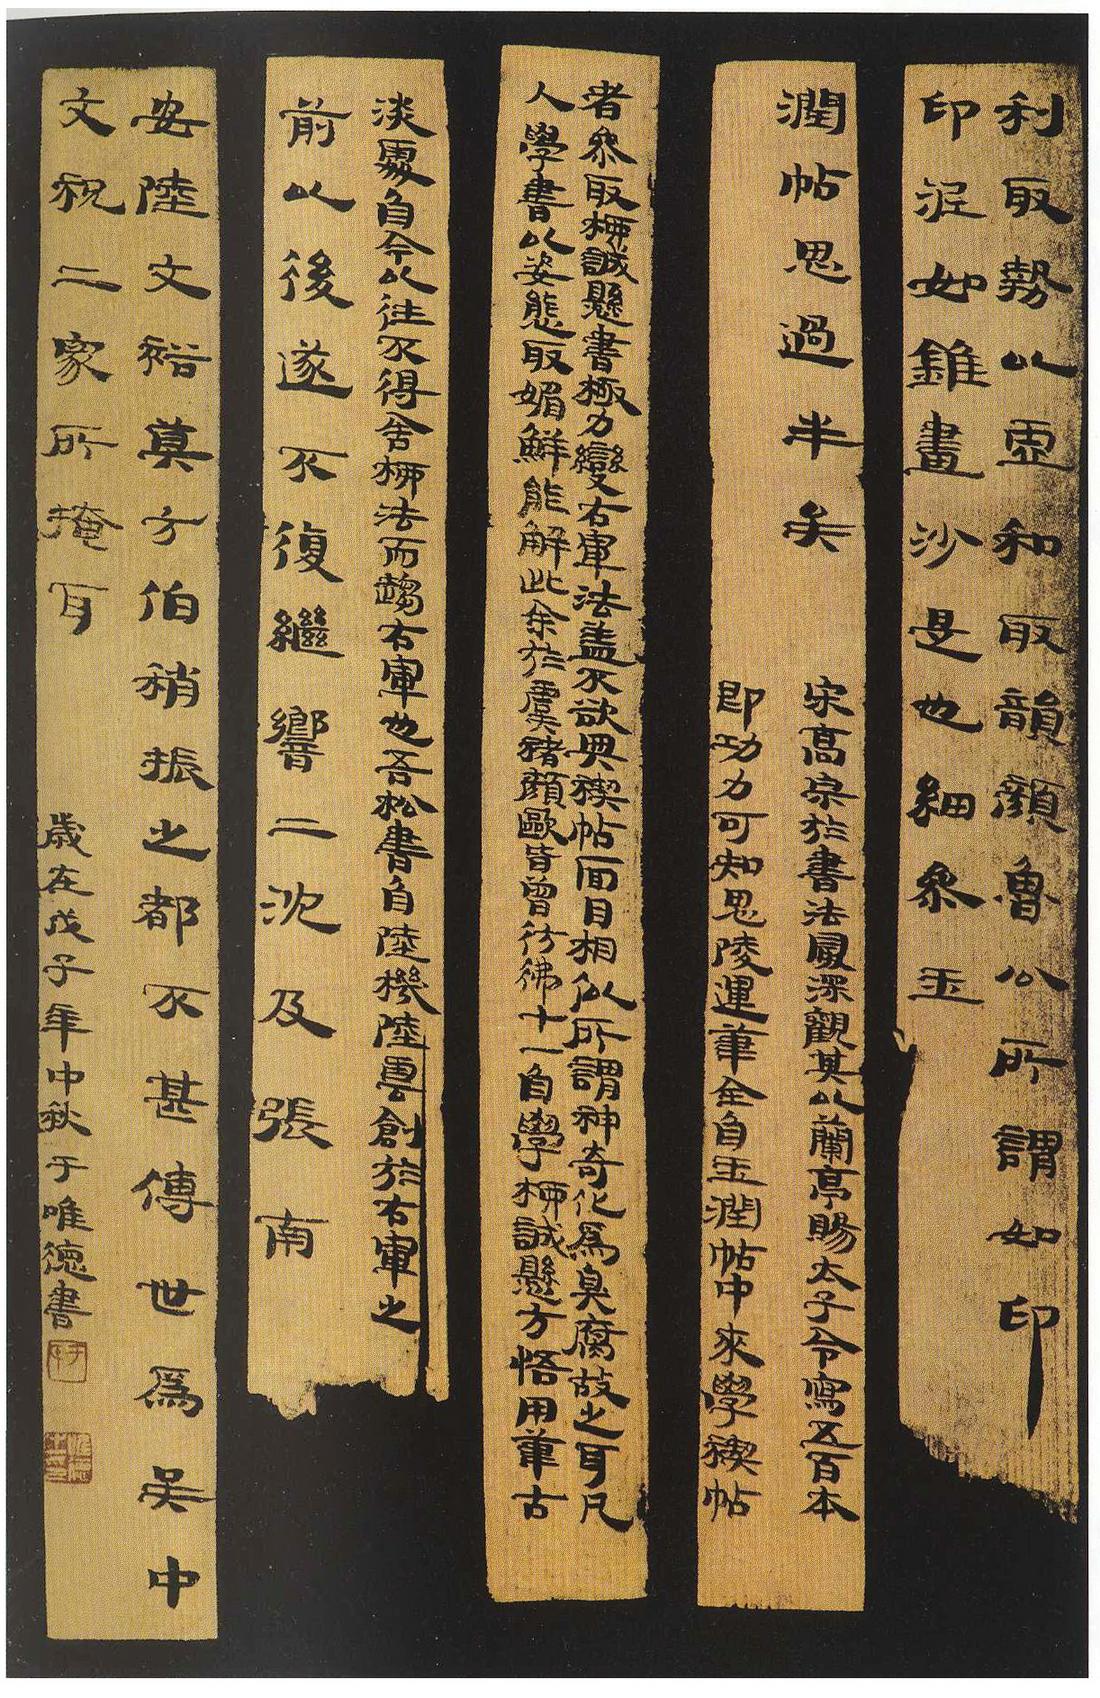 利取勢以虚和取韻顔魯公所謂如印
印泥如錐畫沙是也細參玉
潤帖思過半矣
宋高宗於書法最深觀其以蘭亭賜太子令寫五百本
即功力可知思陵運筆全自玉潤帖中來學禊帖
者參取柳誠懸書極力變右軍法蓋不欲與禊帖面目相似所謂神奇化為臭腐故之耳凡
人學書以姿態取媚鮮能解此余於虞褚顔歐皆曾彷彿十一自學柳誠懸方悟用筆古
淡處自今以往不得舍柳法而趨右軍也吾松書自陸機陸雲創於右軍之
前以後遂不復繼響二沈及張南
安陸文裕莫方伯稍振之都不甚傳世為吴中
文祝二家所掩耳
歲在戊子年中秋于唯德書